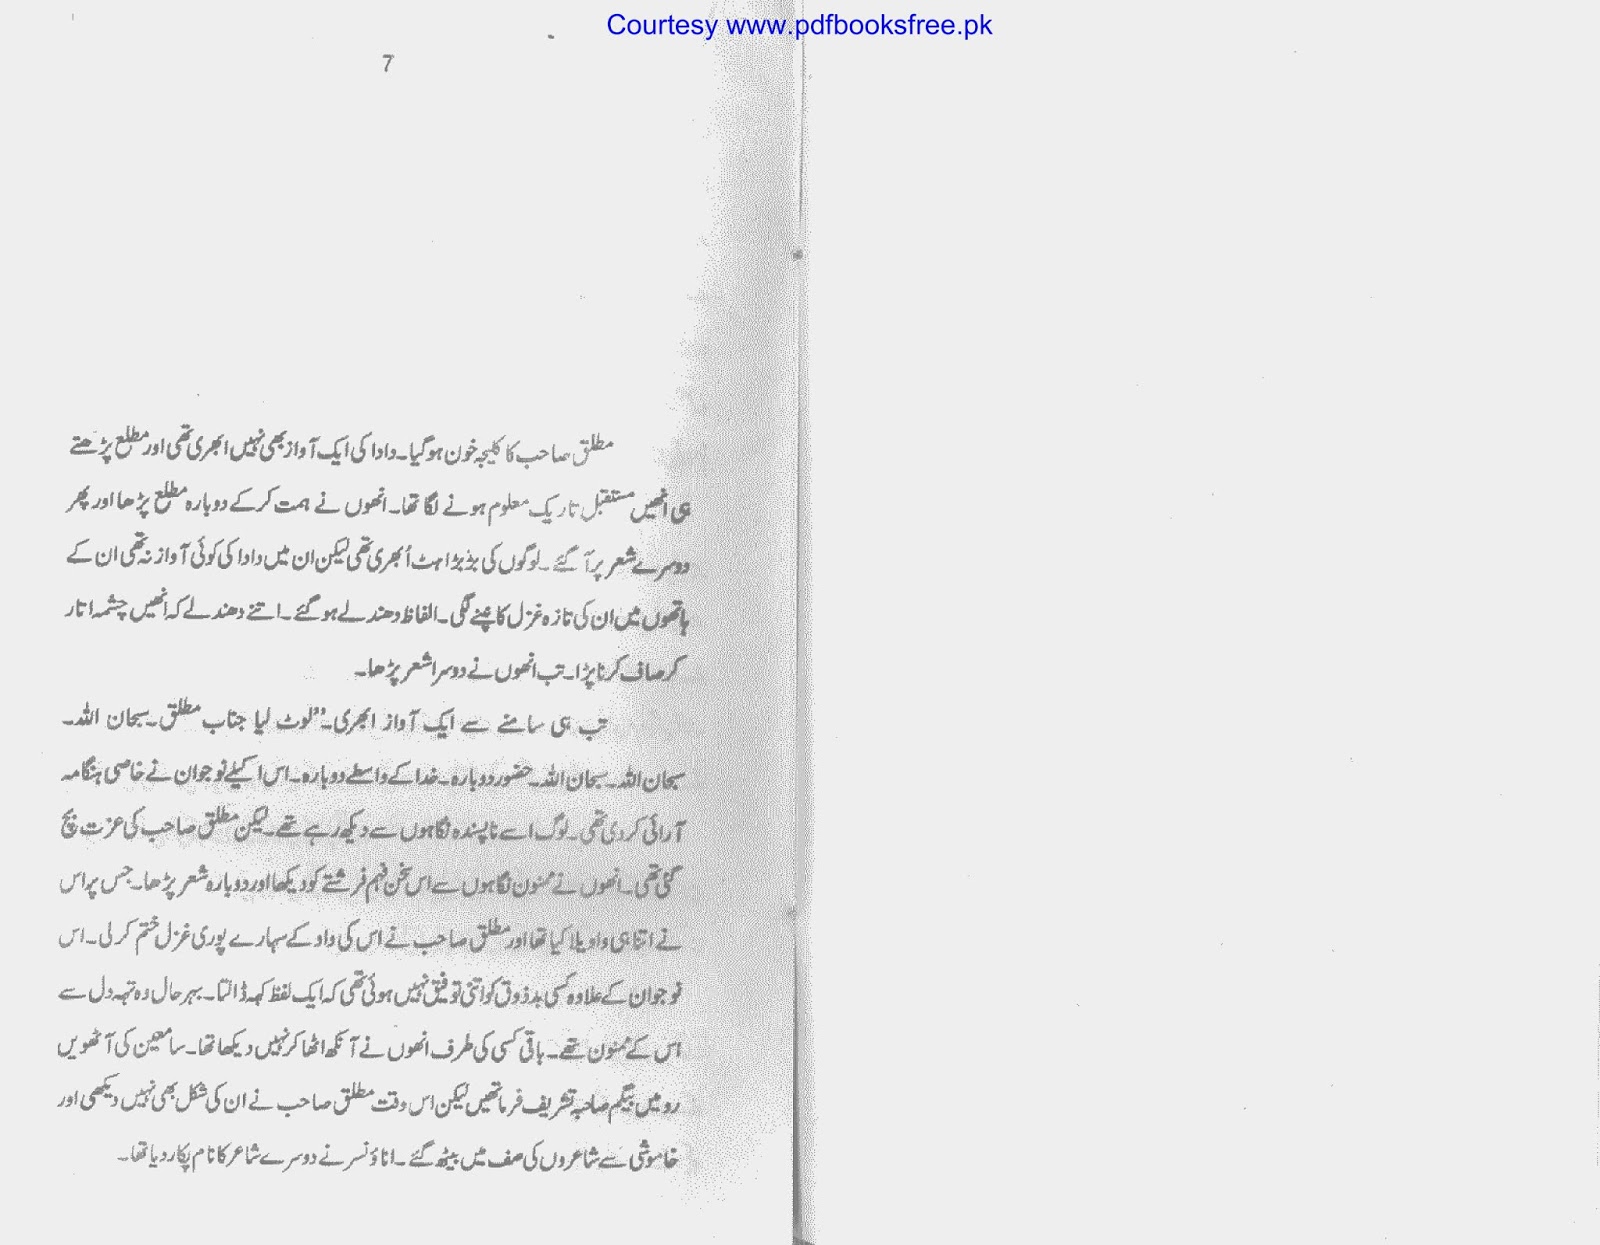 Courtesy www.pdfbooksfree.pk
7
مطلق صاحب کا کلیجہ خون ہو گیا۔ داد کی ایک آواز بھی نہیں ابھری تھی اور مطلع پڑھتے
ہی انھیں مستقبل تاریک معلوم ہونے لگا تھا۔ انھوں نے ہمت کر کے دوبارہ مطلع پڑھا اور پھر
دوسرے شعر پر آ گئے۔ لوگوں کی بڑبڑاہٹ اُبھری تھی لیکن ان میں داد کی کوئی آواز نہ تھی ان کے
ہاتھوں میں ان کی تازہ غزل کانپنے لگی۔ الفاظ دھندلے ہو گئے۔ اتنے دھندلے کہ انھیں چشمہ اتار
کر صاف کرنا پڑا۔ تب انھوں نے دوسرا شعر پڑھا۔
تب ہی سامنے سے ایک آواز ابھری۔ ”لوٹ لیا جناب مطلق۔ سبحان اللہ۔
سبحان اللہ۔ سبحان اللہ۔ حضور دوبارہ۔ خدا کے واسطے دوبارہ۔ اس اکیلے نوجوان نے خاصی ہنگامہ
آرائی کر دی تھی۔ لوگ اسے ناپسندہ نگاہوں سے دیکھ رہے تھے۔ لیکن مطلق صاحب کی عزت بچ
گئی تھی۔ انھوں نے ممنون نگاہوں سے اس سخن فہم فرشتے کو دیکھا اور دوبارہ شعر پڑھا۔ جس پر اس
نے اتنا ہی واویلا کیا تھا اور مطلق صاحب نے اس کی داد کے سہارے پوری غزل ختم کر لی۔ اس
نوجوان کے علاوہ کسی بدذوق کو اتنی توفیق نہیں ہوئی تھی کہ ایک لفظ کہہ ڈالتا۔ بہرحال وہ تہہ دل سے
اس کے ممنون تھے۔ باقی کسی کی طرف انھوں نے آنکھ اٹھا کر نہیں دیکھا تھا۔ سامعین کی آٹھویں
رو میں بیگم صاحبہ تشریف فرما تھیں لیکن اس وقت مطلق صاحب نے ان کی شکل بھی نہیں دیکھی اور
خاموشی سے شاعروں کی صف میں بیٹھ گئے۔ اناؤنسر نے دوسرے شاعر کا نام پکار دیا تھا۔